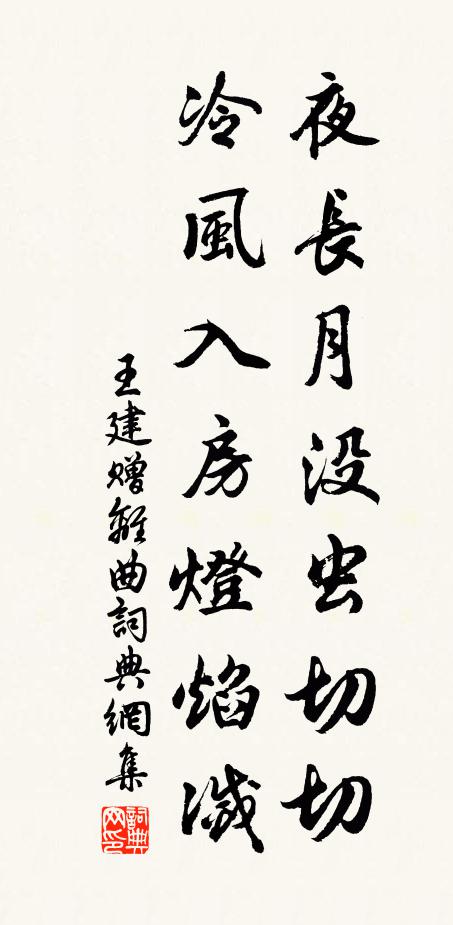 夜長月没虫切切
冷風入房燈焰滅
王建贈離曲詞典網集
詞典网印